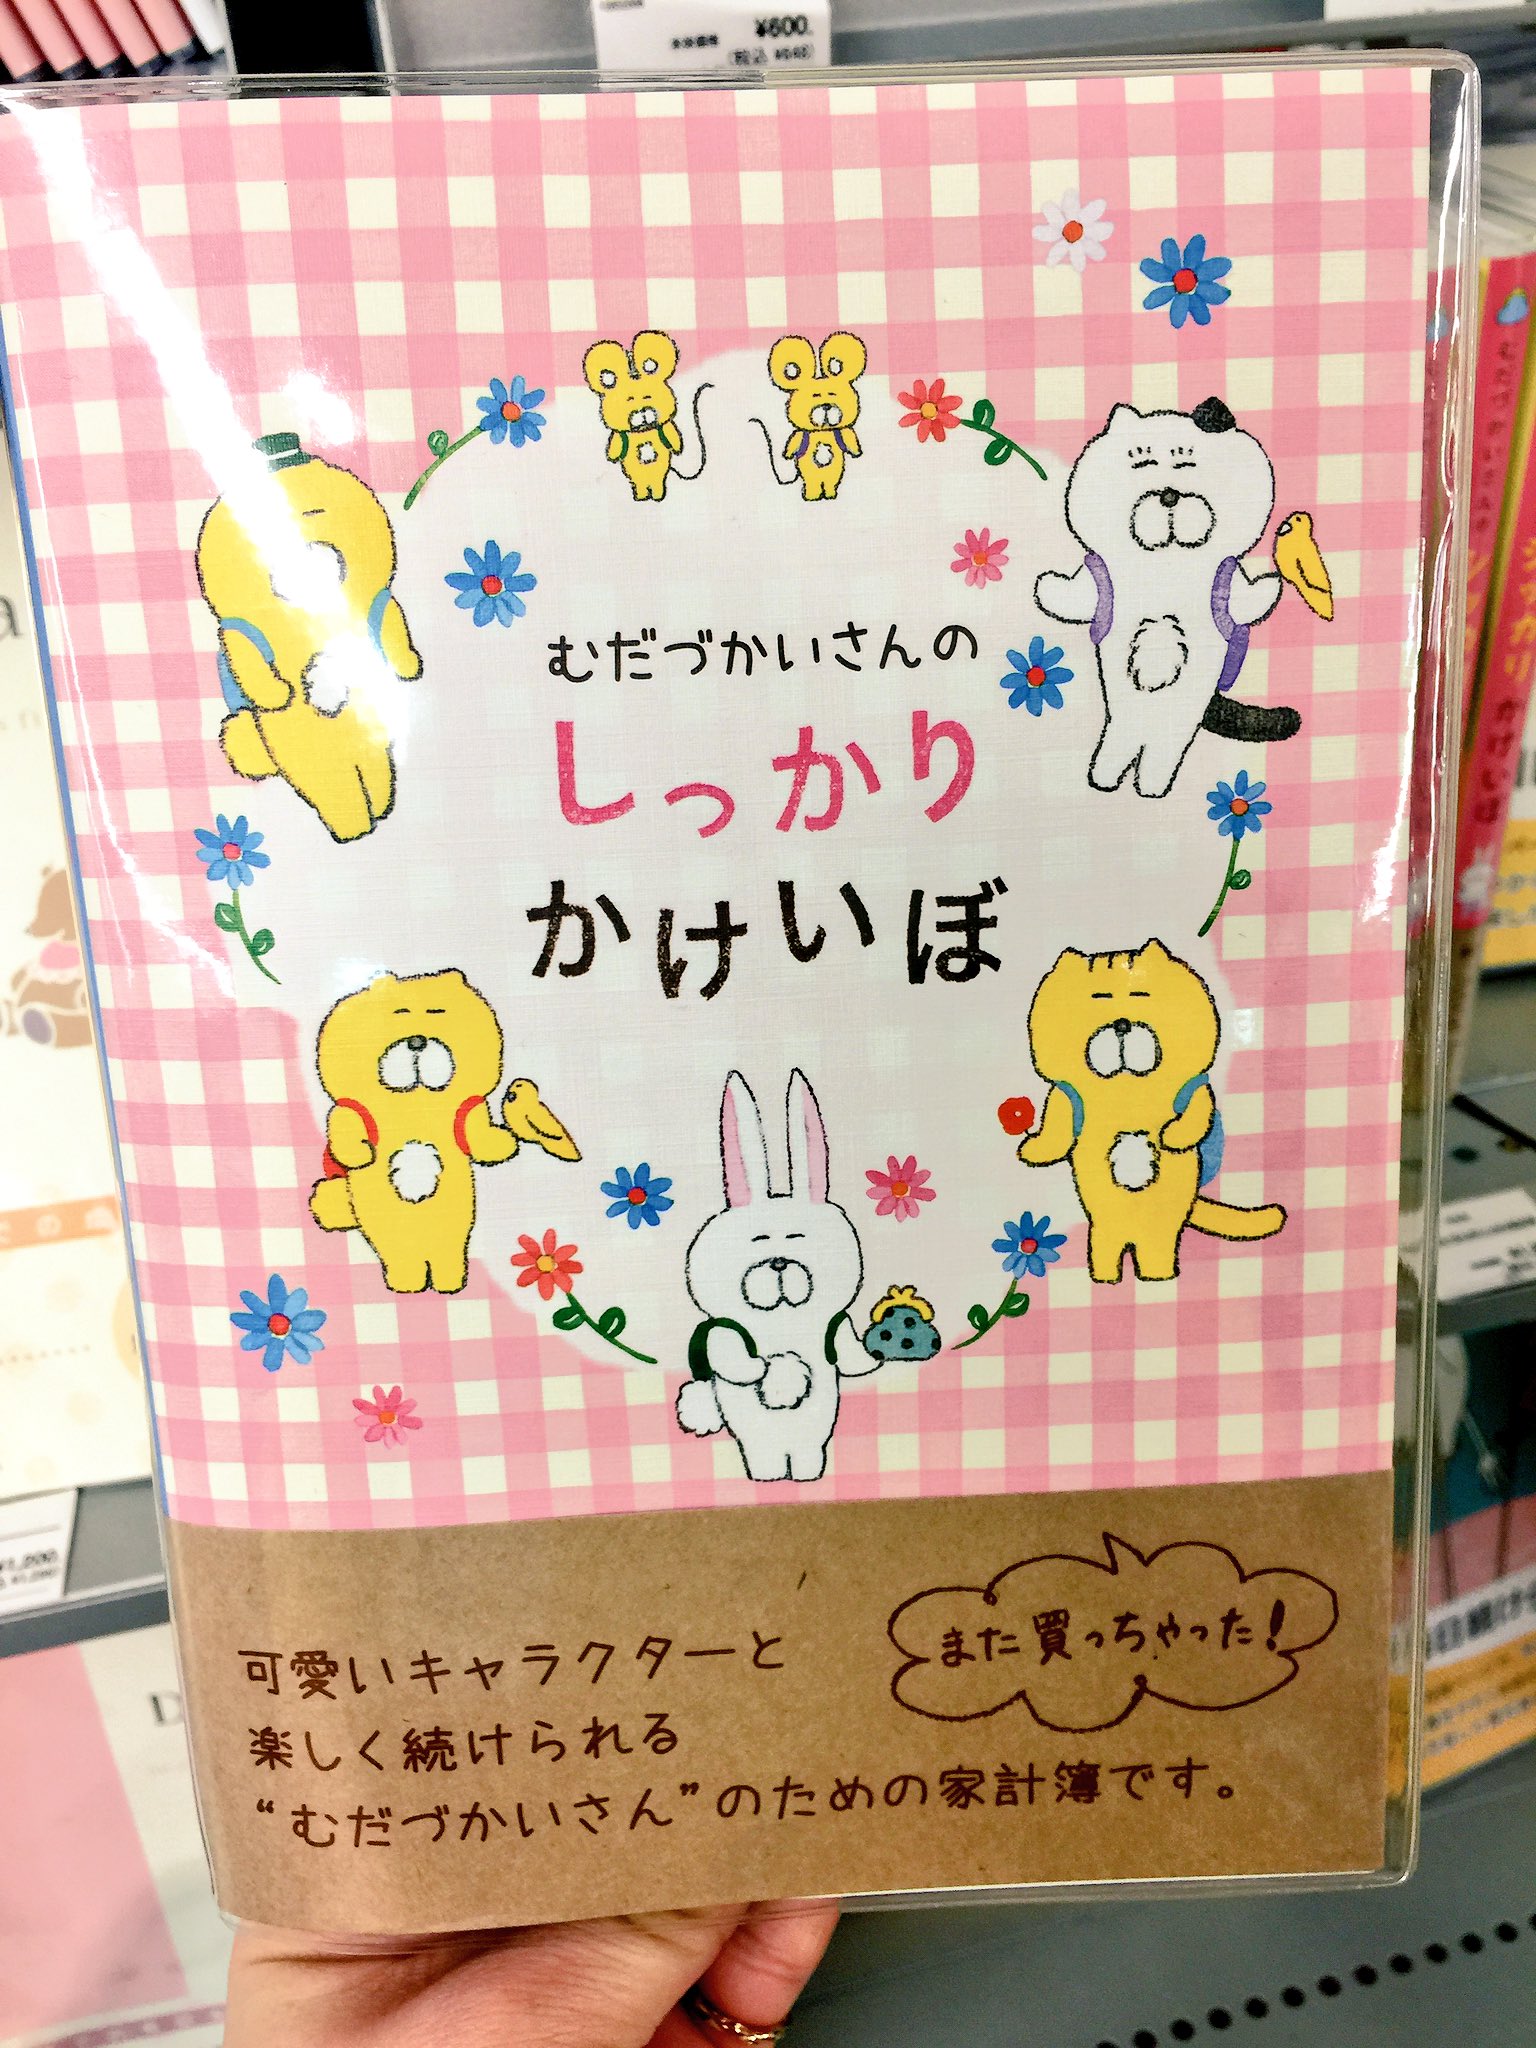 ¥600.
むだづかいさんの
しっかり
かけいぼ
また買っちゃった!
可愛いキャラクターと
楽しく続けられる
“むだづかいさん”のための家計簿です。